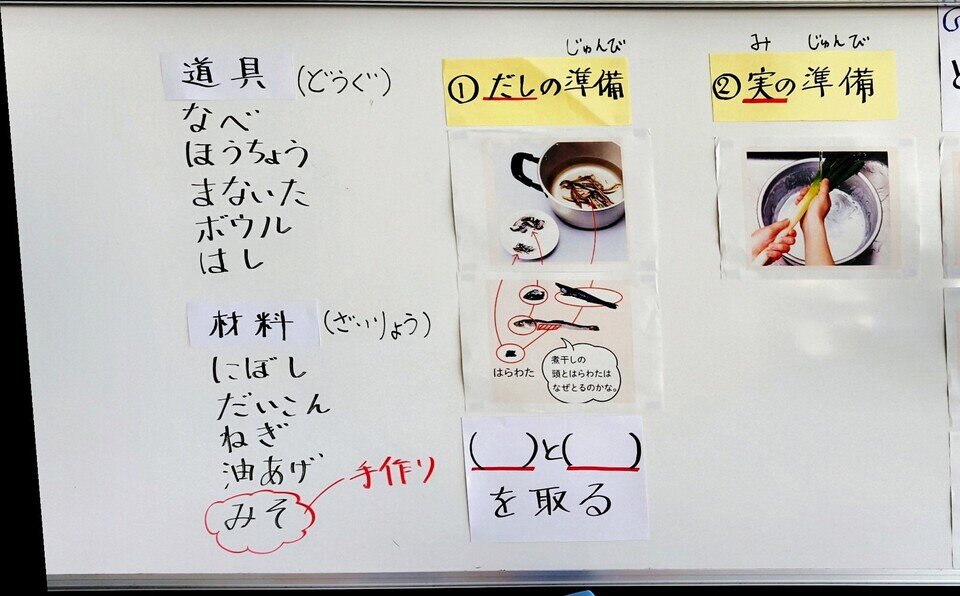 道具(どうぐ)
なべ
ほうちょう
まないた
ボウル
はし
材料(ざいりょう)
にぼし
だいこん
ねぎ
油あげ
みそ
手作り
じゅんび
①だしの準備
はらわた
煮干しの
頭とはらわたは
なぜとるのかな。
(　　)と(　　)
を取る
み じゅんび
②実の準備